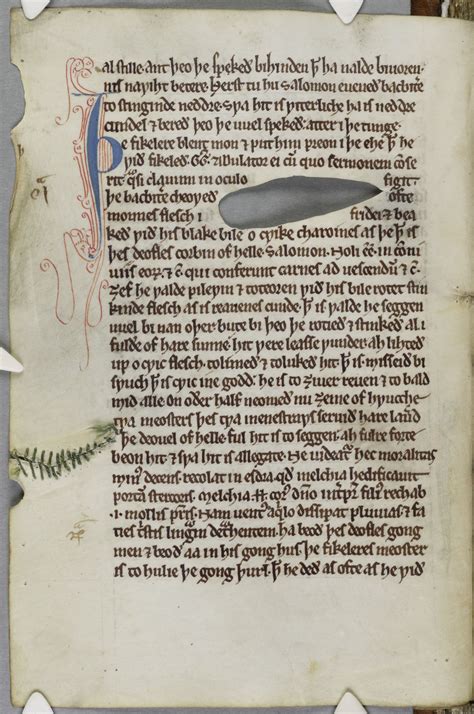 al stille. ant þeo þe speked bihinden þ ha walde biuoren.
nis nawiht betere. Herst tu hu Salomon euened bacbitere
to stinginde neddre. Swa hit is witerliche ha is neddre
cundel & bered þeo þe uuel speked. atter i þe tunge.
þe fikelere blent mon & put him preon i þe ehe þ he
wid fikeled. Gg. Adulator ei cū quo sermonem cōse
rit. q̄si clauum in oculo figit.
þe bacbite cheowed ofte
monnes flesch i fridei & bea
ked wid his blake bile o cwike charoines as þe þ is
þes deofles corbin of helle. Salomon. Noli eē in cōui
uiis eoꝝ. & č qui conferunt carnes ad uescendū & č.
ȝef he walde pilewin & toteoren wid his bile rotet stin
kinde flesch as is reauenes cunde. þ is walde he seggen
uuel bi nan oþer. bute bi þeo þe rotied & stinked al i
fulde of hare sunne. hit were leasse wunder. ah lihted
up o cwic flesch. tolimed & toluked hit. þ is. misseid bi
swuch þ is cwic ine godd. he is to ȝiuer reuen & to bald
mid alle. on oder half neomed nu ȝeme of hwucche
twa meosters þes twa menestraws seruid hare lauerd
þe deouel of helle. ful hit is to seggen. ah fulre forte
beon hit. & swa hit is allegate. Ne uideatr hec moralitas
min' decens. recolat in esdra qd melchia hedificauit
portā stercoris. Melchia
.i. mollis pr̄is. Nam uent' aq̄lo dissipat pluuias. & fa
cies t̄stis lingm̄ det̄hentem. ha beod þes deofles gong
men & beod aa in his gong hus. þe fikeleres meoster
is to hulie þe gong þurl. þ he ded as ofte as he wid